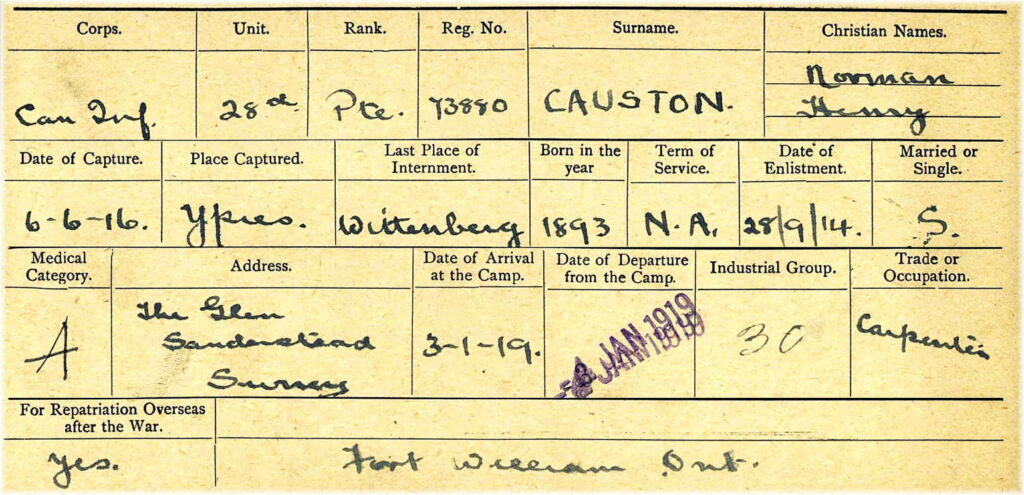 Corps. Unit. Rank. Reg. No. Surname. Christian Names.
Can Inf. 28th Pte. 73880 CAUSTON. Norman
Henry
Date of Capture. Place Captured. Last Place of Internment. Born in the year Term of Service. Date of Enlistment. Married or Single.
6-6-16. Ypres. Wittenberg 1893 N.A. 28/9/14. S.
Medical Category. Address. Date of Arrival at the Camp. Date of Departure from the Camp. Industrial Group. Trade or Occupation.
A The Glen
Sanderstead
Surrey
3-1-19. JAN 1919 30 Carpenter
For Repatriation Overseas
after the War.
Yes. Fort William Ont.